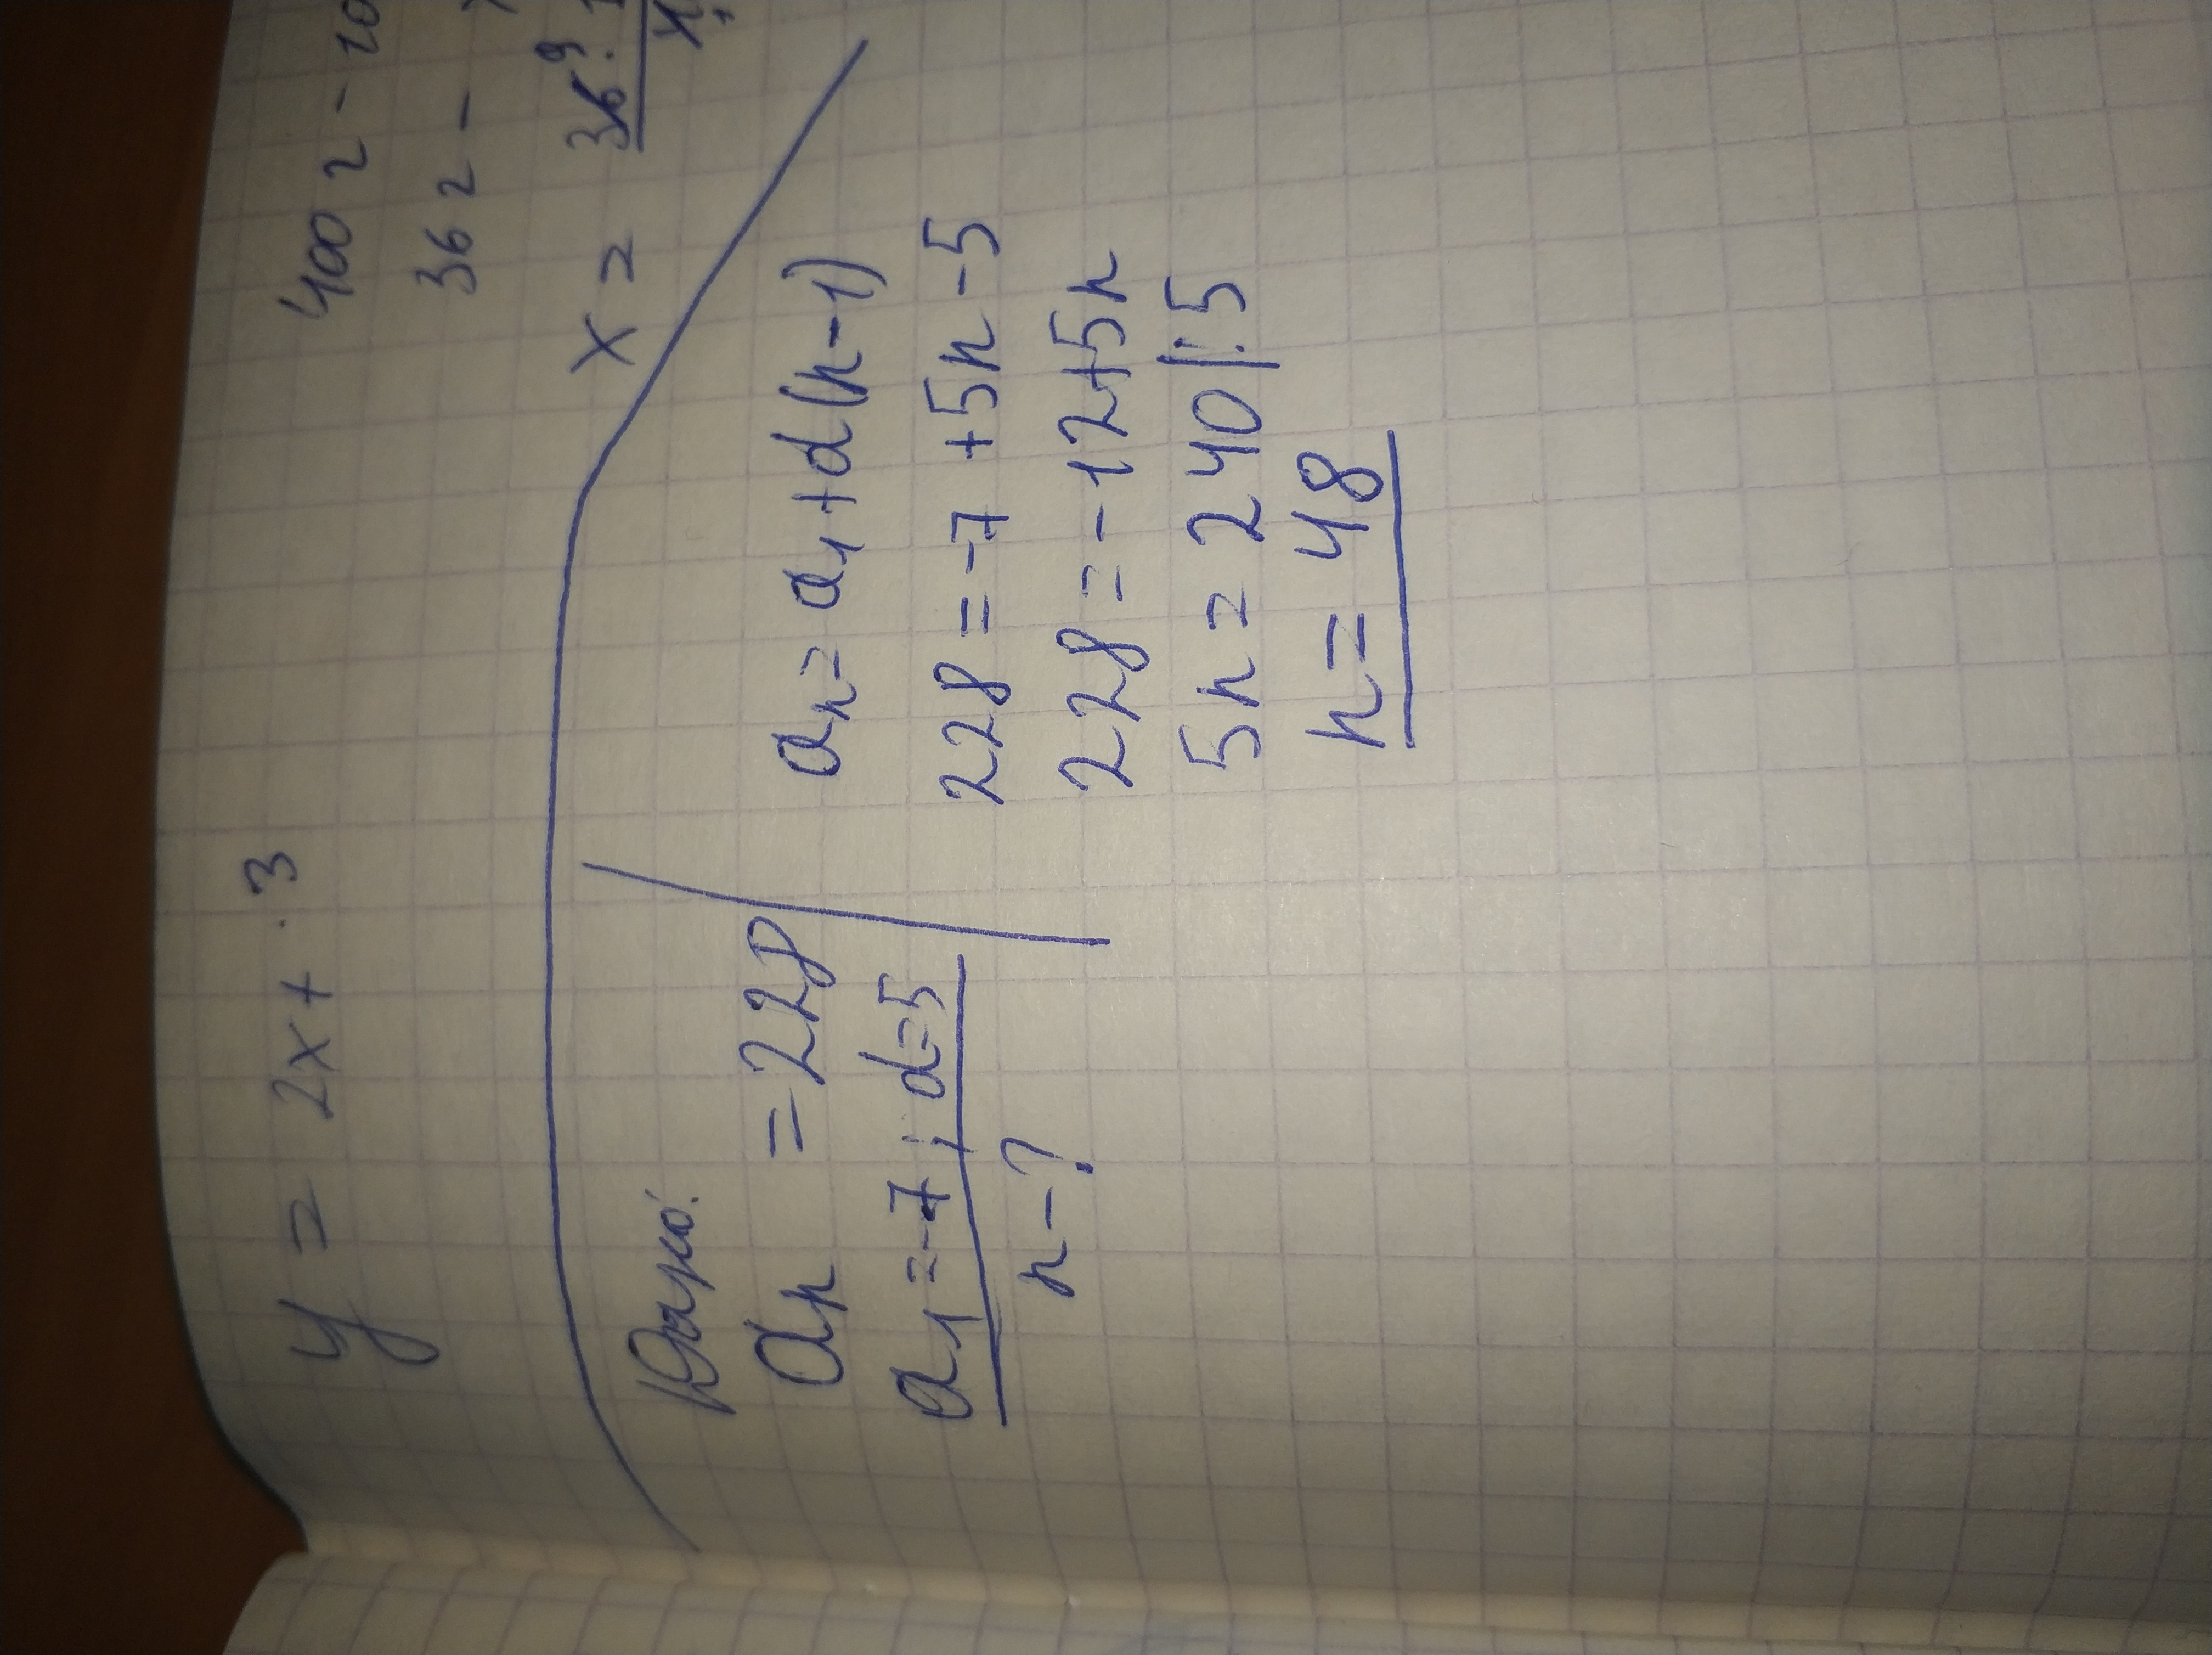 y = 2x + 3
400 г -
36 г -
x =
Дано:
an = 228
a1 = -7; d=5
n - ?
an = a1 + d(n-1)
228 = -7 + 5n - 5
228 = -12+5n
5n = 240 |:5
n = 48